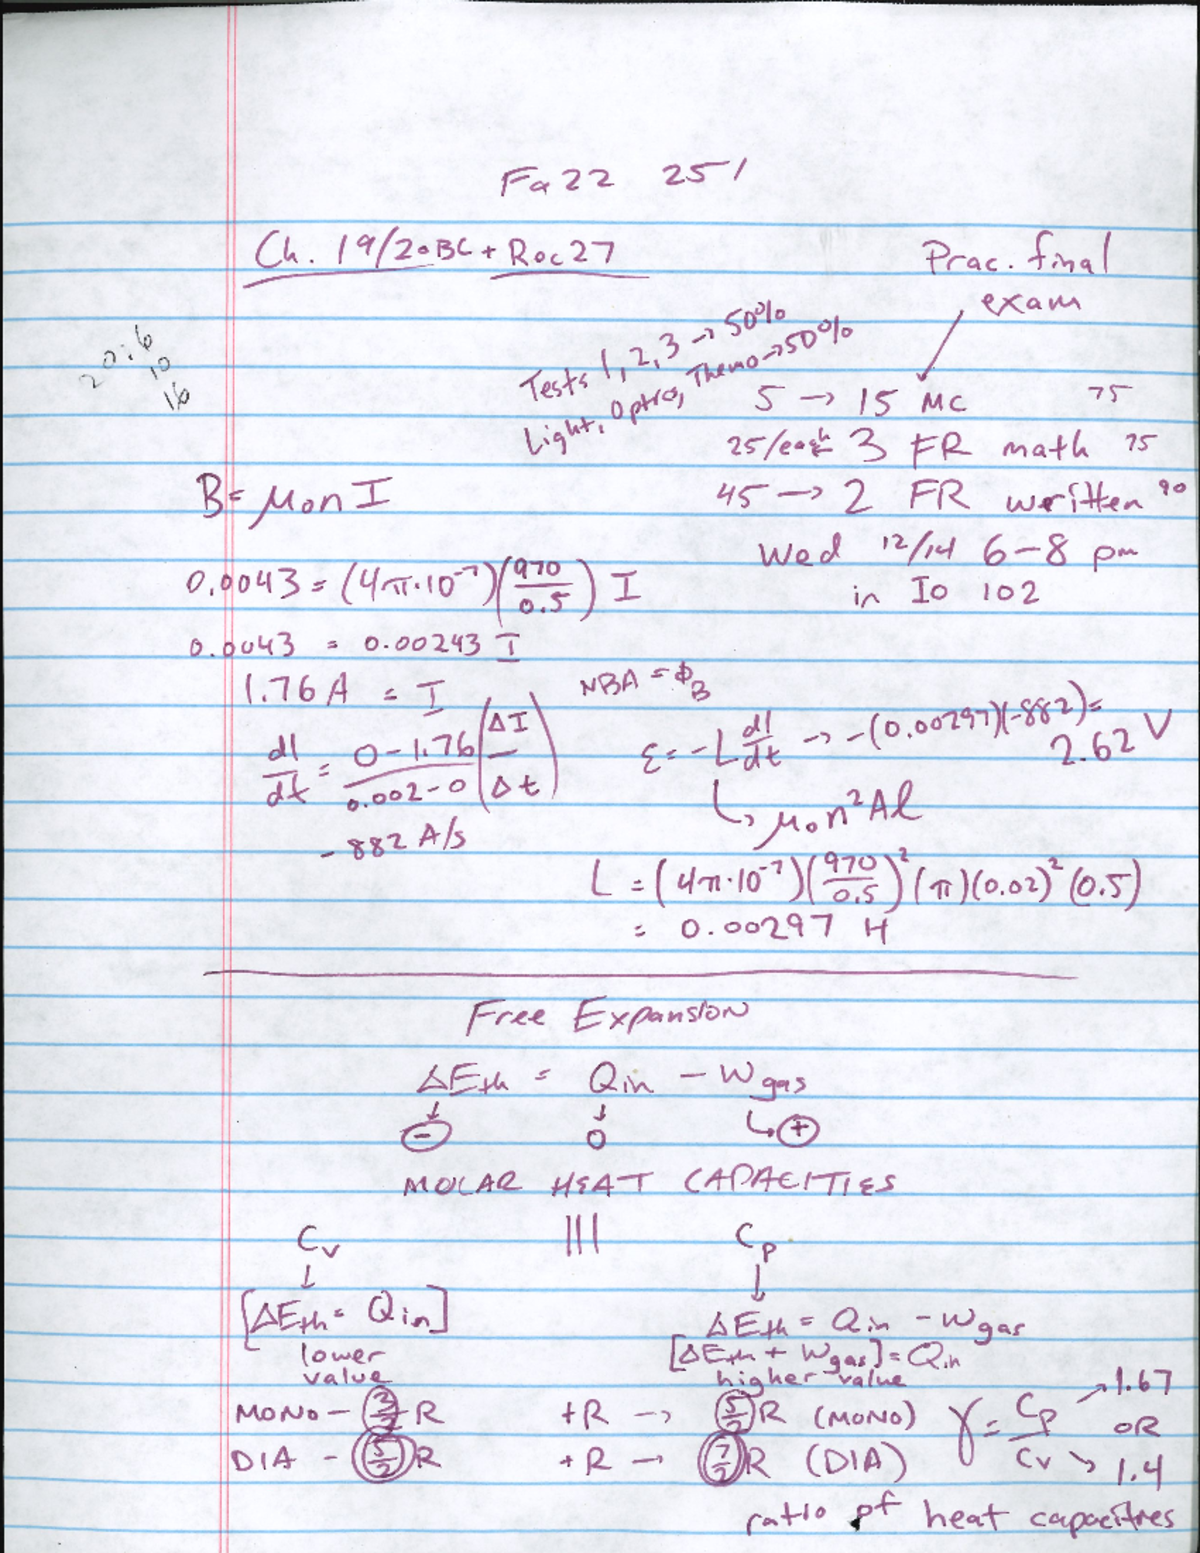 Fa22 251
Ch. 19/20BC + Roc27
Prac. final
exam
20:6
10
16
Tests 1, 2, 3 → 50%
Light, Optics, Themo → 50%
5 → 15 MC 75
25/each 3 FR math 75
45 → 2 FR written 90
Wed 12/14 6-8 pm
in Io 102
B = μ₀n I
0.0043 = (4π·10⁻⁷)(970/0.5) I
0.0043 = 0.00243 I
1.76 A = I
NBA = Φ_B
dI/dt = (0 - 1.76)/(0.002 - 0) (ΔI/Δt)
-882 A/s
ε = -L dI/dt → -(0.00297)(-882) =
2.62 V
↳ μ₀n²Al
L = (4π·10⁻⁷)(970/0.5)²(π)(0.02)²(0.5)
= 0.00297 H
Free Expansion
ΔEth = Qin - Wgas
↓ ↓ ↳
⊖ 0 ⊕
MOLAR HEAT CAPACITIES
Cv ||| Cp
↓ ↓
[ΔEth = Qin]
lower
value
ΔEth = Qin - Wgas
[ΔEth + Wgas] = Qin
higher value
MONO - 3/2 R +R → 5/2 R (MONO)
DIA - 5/2 R +R → 7/2 R (DIA)
γ = Cp/Cv → 1.67
OR
→ 1.4
ratio of heat capacities